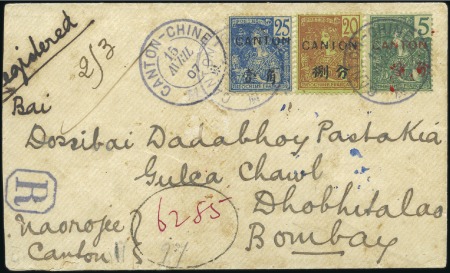 Registered
2/3
CANTON-CHINE
15
AVRIL
07
25
CANTON
壹角
20
CANTON
捌分
5
CANTON
Bai
Dossibai Dadabhoy Pastakia
Gulca Chawl
Dhobhitalao
Bombay
R
Naorojee
Canton
6285